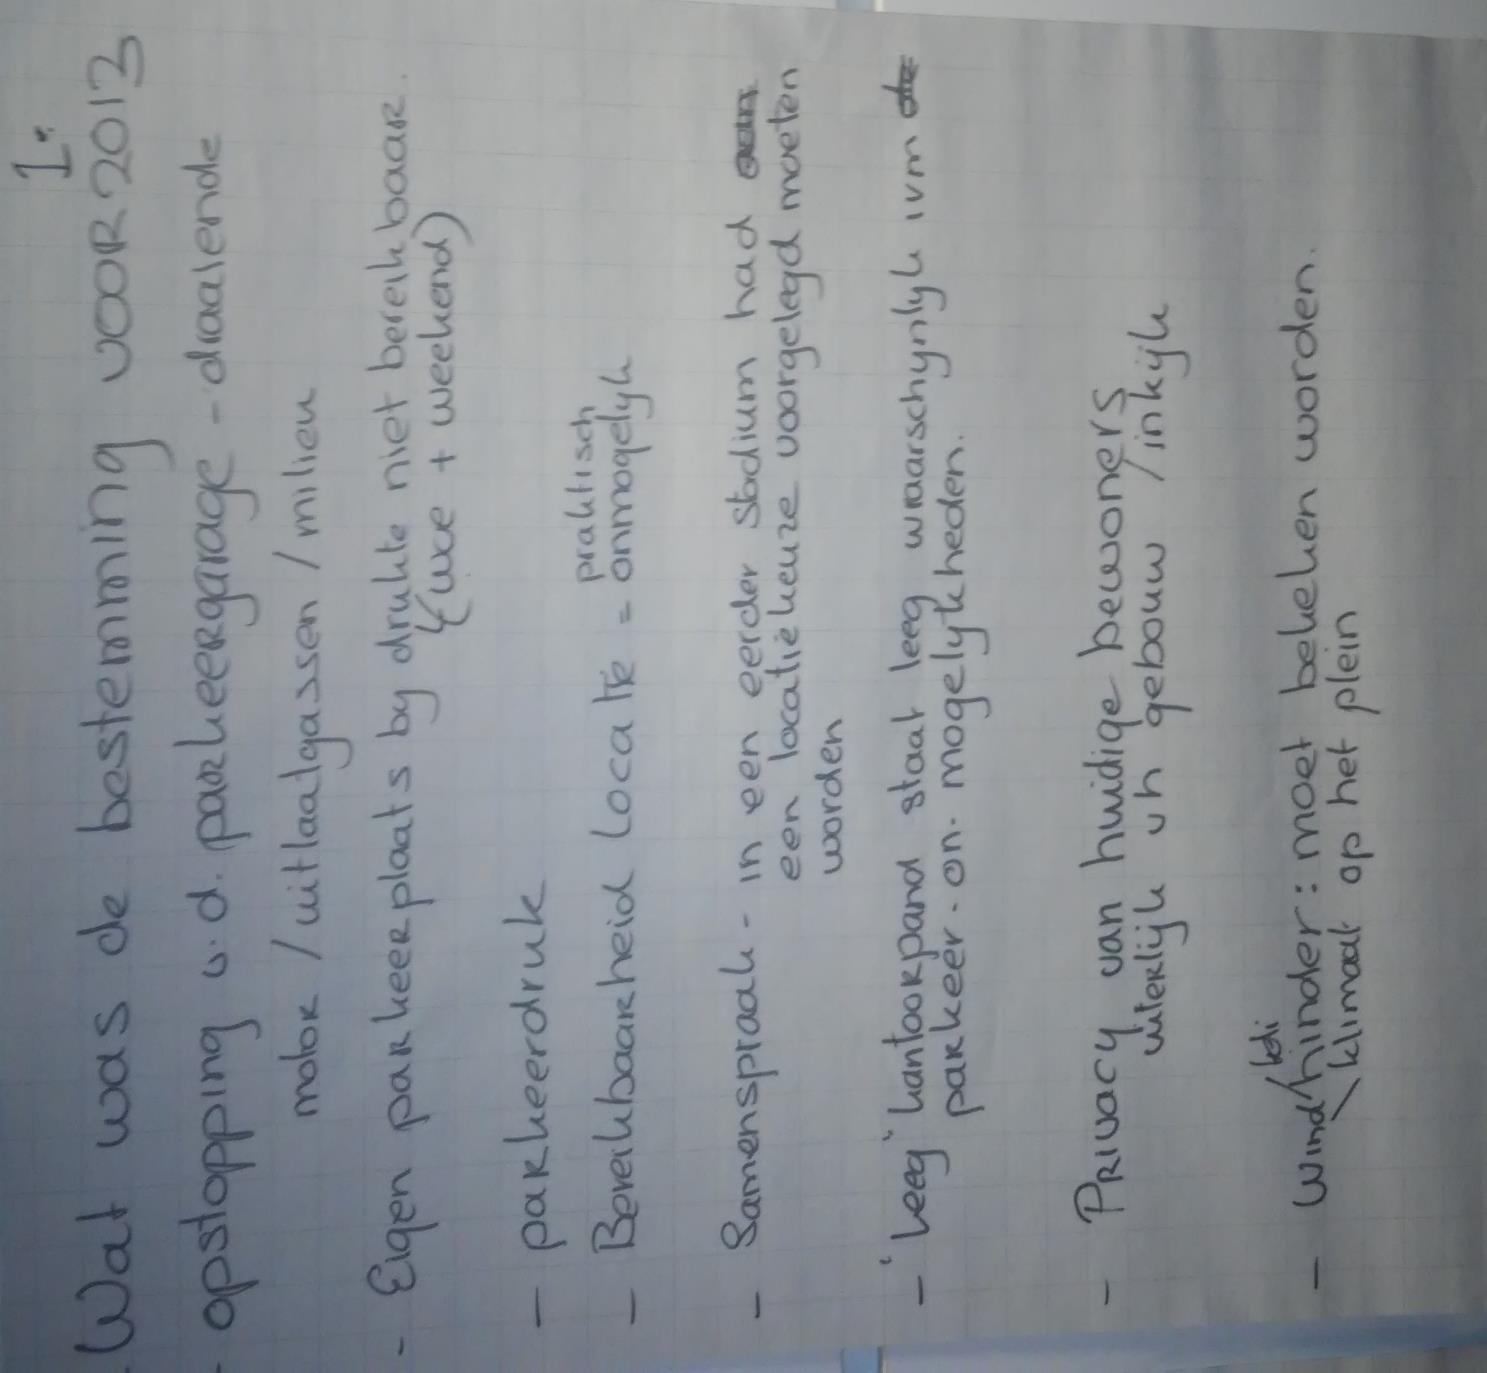 1.
- Wat was de bestemming voor 2013
- opstopping v.d. parkeergarage - draaiende
motor / uitlaatgassen / milieu
- Eigen parkeerplaats by drukte niet bereikbaar.
(wce + weekend)
- parkeerdruk
praktisch
- Bereikbaarheid Locatie = onmogelyk
- Samenspraak - in een eerder stadium had
een locatie keuze voorgelegd moeten
worden
- 'Leeg' kantoorpand staat leeg waarschynlyk ivm
parkeer. on. mogelykheden.
- Privacy van huidige bewoners
uiterlijk vh gebouw / inkijk
- Wind/hinder: moet bekeken worden.
klimaat op het plein